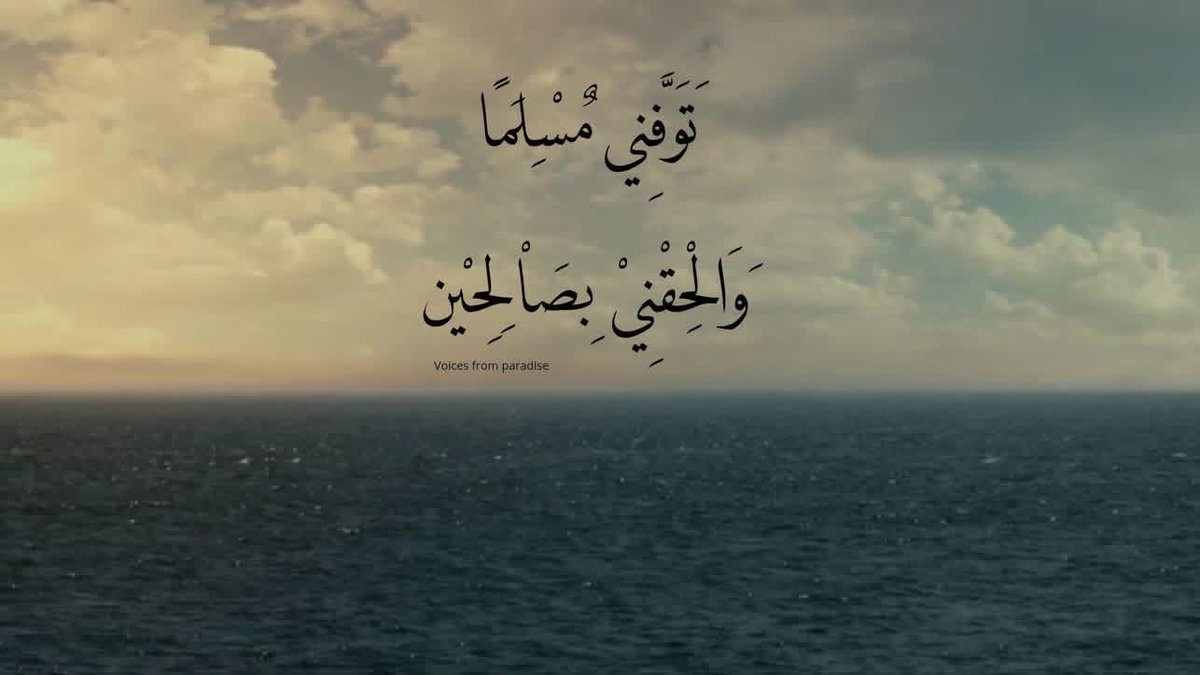 تَوَفَّنِي مُسْلِمًا
وَالْحِقْنِيْ بِصَاْلِحِيْن
Voices from paradise